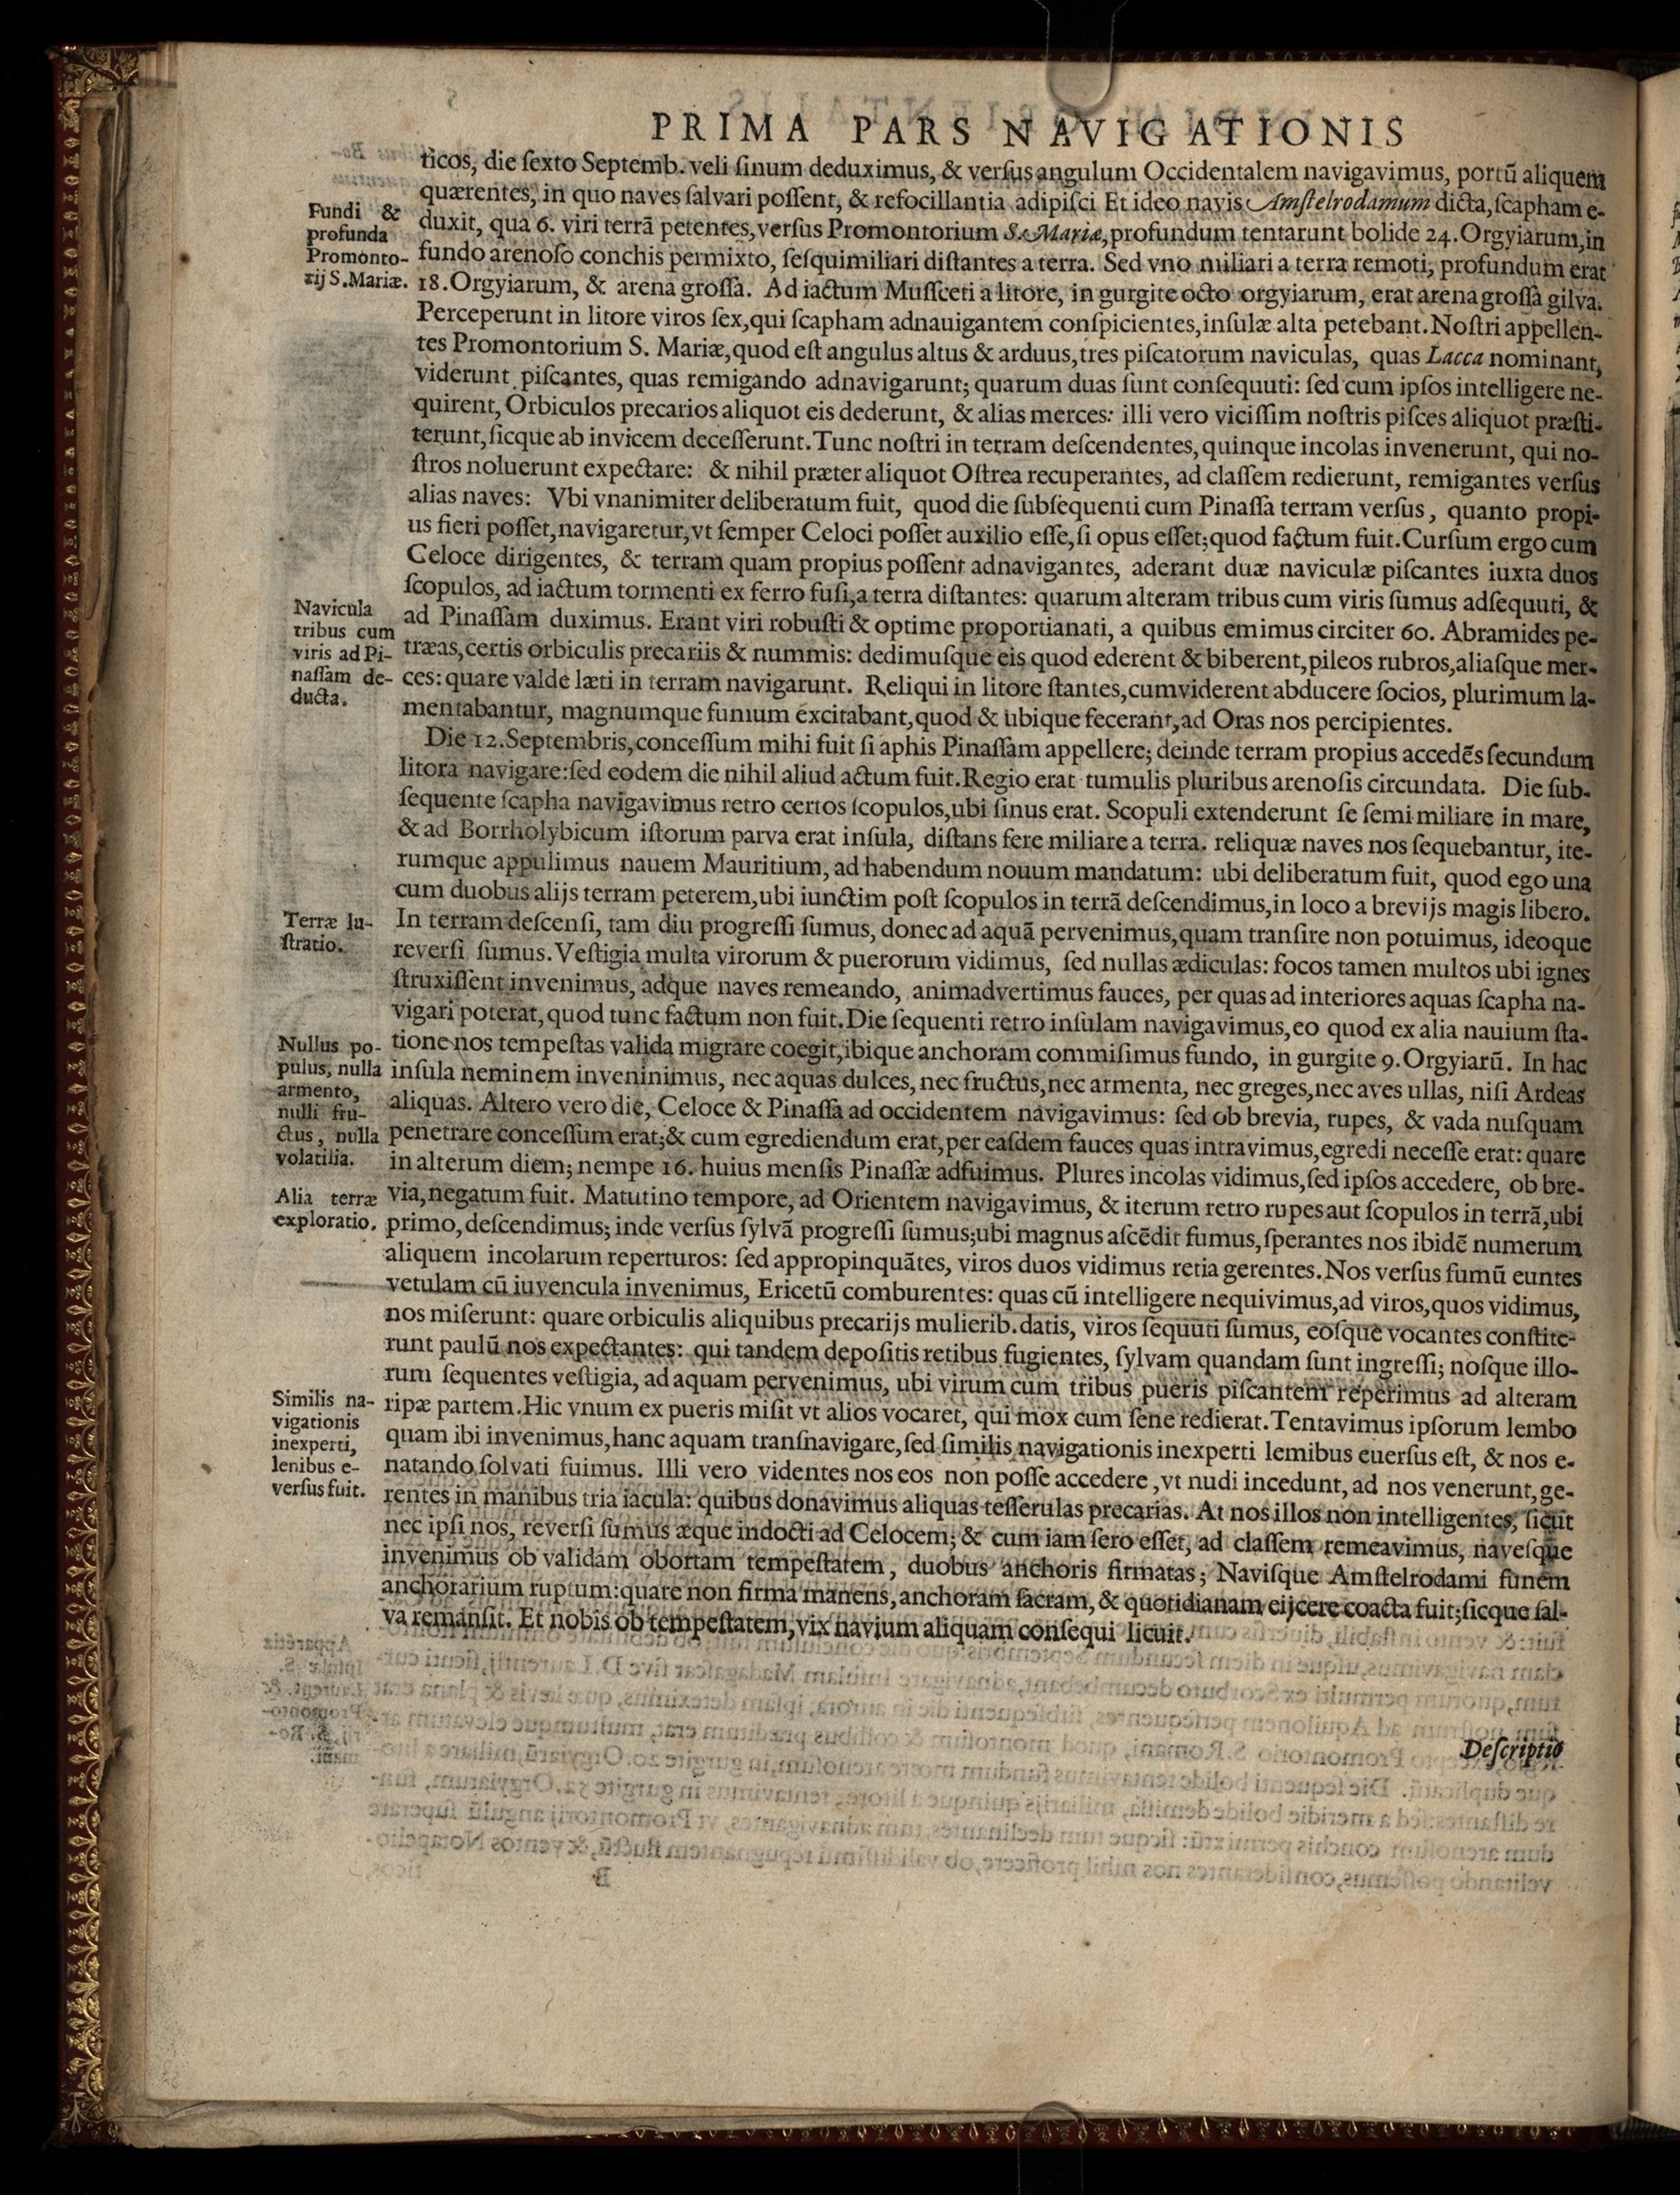 PRIMA PARS NAVIGATIONIS
ticos, die ſexto Septemb. veli ſinum deduximus, & verſus angulum Occidentalem navigavimus, portū aliquem
quærentes, in quo naves ſalvari poſſent, & refocillantia adipiſci Et ideo navis Amſtelrodamum dicta, ſcapham e-
duxit, qua 6. viri terrā petentes, verſus Promontorium S. Mariæ, profundum tentarunt bolide 24. Orgyiarum, in
fundo arenoſo conchis permixto, ſeſquimiliari diſtantes a terra. Sed vno miliari a terra remoti, profundum erat
18. Orgyiarum, & arena groſſa. Ad iactum Muſſceti a litore, in gurgite octo orgyiarum, erat arena groſſa gilva.
Perceperunt in litore viros ſex, qui ſcapham adnauigantem conſpicientes, inſulæ alta petebant. Noſtri appellen-
tes Promontorium S. Mariæ, quod eſt angulus altus & arduus, tres piſcatorum naviculas, quas Lacca nominant,
viderunt piſcantes, quas remigando adnavigarunt; quarum duas ſunt conſequuti: ſed cum ipſos intelligere ne-
quirent, Orbiculos precarios aliquot eis dederunt, & alias merces: illi vero viciſſim noſtris piſces aliquot præſti-
terunt, ſicque ab invicem deceſſerunt. Tunc noſtri in terram deſcendentes, quinque incolas invenerunt, qui no-
ſtros noluerunt expectare: & nihil præter aliquot Oſtrea recuperantes, ad claſſem redierunt, remigantes verſus
alias naves: Vbi vnanimiter deliberatum fuit, quod die ſubſequenti cum Pinaſſa terram verſus, quanto propi-
us fieri poſſet, navigaretur, vt ſemper Celoci poſſet auxilio eſſe, ſi opus eſſet; quod factum fuit. Curſum ergo cum
Celoce dirigentes, & terram quam propius poſſent adnavigantes, aderant duæ naviculæ piſcantes iuxta duos
ſcopulos, ad iactum tormenti ex ferro fuſi, a terra diſtantes: quarum alteram tribus cum viris ſumus adſequuti, &
ad Pinaſſam duximus. Erant viri robuſti & optime proportianati, a quibus emimus circiter 60. Abramides pe-
træas, certis orbiculis precariis & nummis: dedimuſque eis quod ederent & biberent, pileos rubros, aliaſque mer-
ces: quare valde læti in terram navigarunt. Reliqui in litore ſtantes, cum viderent abducere ſocios, plurimum la-
mentabantur, magnumque fumum excitabant, quod & ubique fecerant, ad Oras nos percipientes.
Die 12. Septembris, conceſſum mihi fuit ſi aphis Pinaſſam appellere; deinde terram propius accedēs ſecundum
litora navigare: ſed eodem die nihil aliud actum fuit. Regio erat tumulis pluribus arenoſis circundata. Die ſub-
ſequente ſcapha navigavimus retro certos ſcopulos, ubi ſinus erat. Scopuli extenderunt ſe ſemi miliare in mare,
& ad Borrholybicum iſtorum parva erat inſula, diſtans fere miliare a terra. reliquæ naves nos ſequebantur, ite-
rumque appulimus nauem Mauritium, ad habendum nouum mandatum: ubi deliberatum fuit, quod ego una
cum duobus alijs terram peterem, ubi iunctim poſt ſcopulos in terrā deſcendimus, in loco a brevijs magis libero.
In terram deſcenſi, tam diu progreſſi ſumus, donec ad aquā pervenimus, quam tranſire non potuimus, ideoque
reverſi ſumus. Veſtigia multa virorum & puerorum vidimus, ſed nullas ædiculas: focos tamen multos ubi ignes
ſtruxiſſent invenimus, adque naves remeando, animadvertimus fauces, per quas ad interiores aquas ſcapha na-
vigari poterat, quod tunc factum non fuit. Die ſequenti retro inſulam navigavimus, eo quod ex alia nauium ſta-
tione nos tempeſtas valida migrare coegit, ibique anchoram commiſimus fundo, in gurgite 9. Orgyiarū. In hac
inſula neminem inveninimus, nec aquas dulces, nec fructus, nec armenta, nec greges, nec aves ullas, niſi Ardeas
aliquas. Altero vero die, Celoce & Pinaſſa ad occidentem navigavimus: ſed ob brevia, rupes, & vada nuſquam
penetrare conceſſum erat; & cum egrediendum erat, per eaſdem fauces quas intravimus, egredi neceſſe erat: quare
in alterum diem; nempe 16. huius menſis Pinaſſæ adfuimus. Plures incolas vidimus, ſed ipſos accedere, ob bre-
via, negatum fuit. Matutino tempore, ad Orientem navigavimus, & iterum retro rupes aut ſcopulos in terrā, ubi
primo, deſcendimus; inde verſus ſylvā progreſſi ſumus; ubi magnus aſcēdit fumus, ſperantes nos ibidē numerum
aliquem incolarum reperturos: ſed appropinquātes, viros duos vidimus retia gerentes. Nos verſus fumū euntes
vetulam cū iuvencula invenimus, Ericetū comburentes: quas cū intelligere nequivimus, ad viros, quos vidimus,
nos miſerunt: quare orbiculis aliquibus precarijs mulierib. datis, viros ſequuti ſumus, eoſque vocantes conſtite-
runt paulū nos expectantes: qui tandem depoſitis retibus fugientes, ſylvam quandam ſunt ingreſſi; noſque illo-
rum ſequentes veſtigia, ad aquam pervenimus, ubi virum cum tribus pueris piſcantem reperimus ad alteram
ripæ partem. Hic vnum ex pueris miſit vt alios vocaret, qui mox cum ſene redierat. Tentavimus ipſorum lembo
quam ibi invenimus, hanc aquam tranſnavigare, ſed ſimilis navigationis inexperti lemibus euerſus eſt, & nos e-
natando ſolvati fuimus. Illi vero videntes nos eos non poſſe accedere, vt nudi incedunt, ad nos venerunt, ge-
rentes in manibus tria iacula: quibus donavimus aliquas teſſerulas precarias. At nos illos non intelligentes, ſicut
nec ipſi nos, reverſi ſumus æque indocti ad Celocem; & cum iam ſero eſſet, ad claſſem remeavimus, naveſque
invenimus ob validam obortam tempeſtatem, duobus anchoris firmatas; Naviſque Amſtelrodami funem
anchorarium ruptum: quare non firma manens, anchoram ſacram, & quotidianam eijcere coacta fuit; ſicque ſal-
va remanſit. Et nobis ob tempeſtatem, vix navium aliquam conſequi licuit.
Deſcriptio
Fundi &
profunda
Promonto-
rij S. Mariæ.
Navicula
tribus cum
viris ad Pi-
naſſam de-
ducta.
Terræ lu-
ſtratio.
Nullus po-
pulus, nulla
armento,
nulli fru-
ctus, nulla
volatilia.
Alia terræ
exploratio.
Similis na-
vigationis
inexperti,
lenibus e-
verſus fuit.